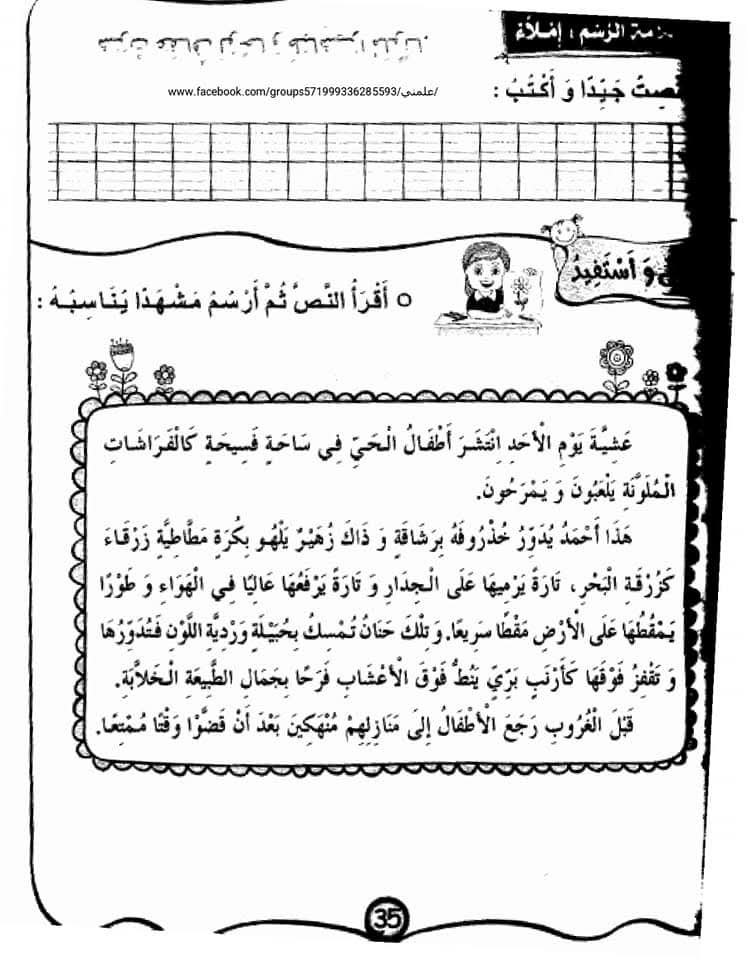 سلامة الرَّسْم : إمْلاَءْ
www.facebook.com/groups571999336285593/علمني/
جَيِّدًا وَ أَكْتُبُ :
وَ أَسْتَفِيدُ
○ أَقْرَأُ النَّصَّ ثُمَّ أَرْسُمُ مَشْهَدًا يُنَاسِبُهُ :
عَشِيَّةَ يَوْمِ الْأَحَدِ اِنْتَشَرَ أَطْفَالُ الْحَيِّ فِي سَاحَةٍ فَسِيحَةٍ كَالْفَرَاشَاتِ
الْمُلَوَّنَةِ يَلْعَبُونَ وَ يَمْرَحُونَ.
هَذَا أَحْمَدُ يُدَوِّرُ خُذْرُوفَهُ بِرَشَاقَةٍ وَ ذَاكَ زُهَيْرٌ يَلْهُو بِكُرَةٍ مَطَّاطِيَّةٍ زَرْقَاءَ
كَزُرْقَةِ الْبَحْرِ، تَارَةً يَرْمِيهَا عَلَى الْجِدَارِ وَ تَارَةً يَرْفَعُهَا عَالِيًا فِي الْهَوَاءِ وَ طَوْرًا
يَمْقُطُهَا عَلَى الْأَرْضِ مَقْطًا سَرِيعًا. وَ تِلْكَ حَنَانُ تُمْسِكُ بِحُبَيْلَةٍ وَرْدِيَّةِ اللَّوْنِ فَتُدَوِّرُهَا
وَ تَقْفِزُ فَوْقَهَا كَأَرْنَبٍ بَرِّيٍّ يَنُطُّ فَوْقَ الْأَعْشَابِ فَرَحًا بِجَمَالِ الطَّبِيعَةِ الْخَلَّابَةِ.
قَبْلَ الْغُرُوبِ رَجَعَ الْأَطْفَالُ إِلَى مَنَازِلِهِمْ مُنْهَكِينَ بَعْدَ أَنْ قَضَّوْا وَقْتًا مُمْتِعًا.
35